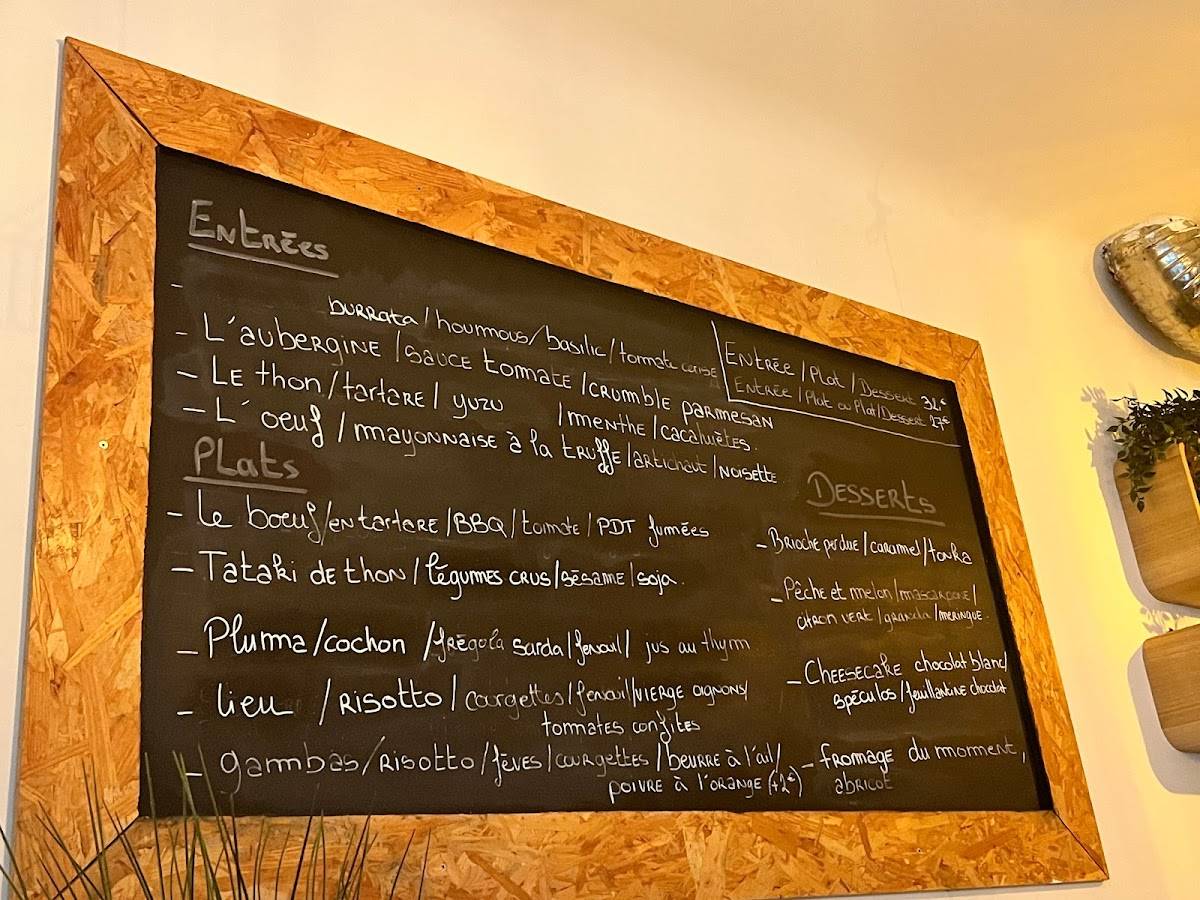 Entrées
- burrata/houmous/basilic/tomate cerise
- L'aubergine/sauce tomate/crumble parmesan
- Le thon/tartare/yuzu /menthe/cacahuètes.
- L'oeuf/mayonnaise à la truffe/artichaut/noisette
Entrée/Plat/Dessert 32€
Entrée/Plat ou Plat/Dessert 27€
Plats
- le boeuf/en tartare/BBQ/tomate/PDT fumées
- Tataki de thon/légumes crus/sésame/soja.
- Pluma/cochon /frégola sarda/fenouil/ jus au thym
- lieu /risotto/courgettes/fenouil/vierge oignons/
tomates confites
- gambas/risotto/fèves/courgettes/beurre à l'ail/
poivre à l'orange (+2€)
Desserts
- Brioche perdue/caramel/tonka
- Pêche et melon/mascarpone/
citron vert/granola/meringue.
- Cheesecake chocolat blanc/
spéculos/feuillantine chocolat
- fromage du moment,
abricot